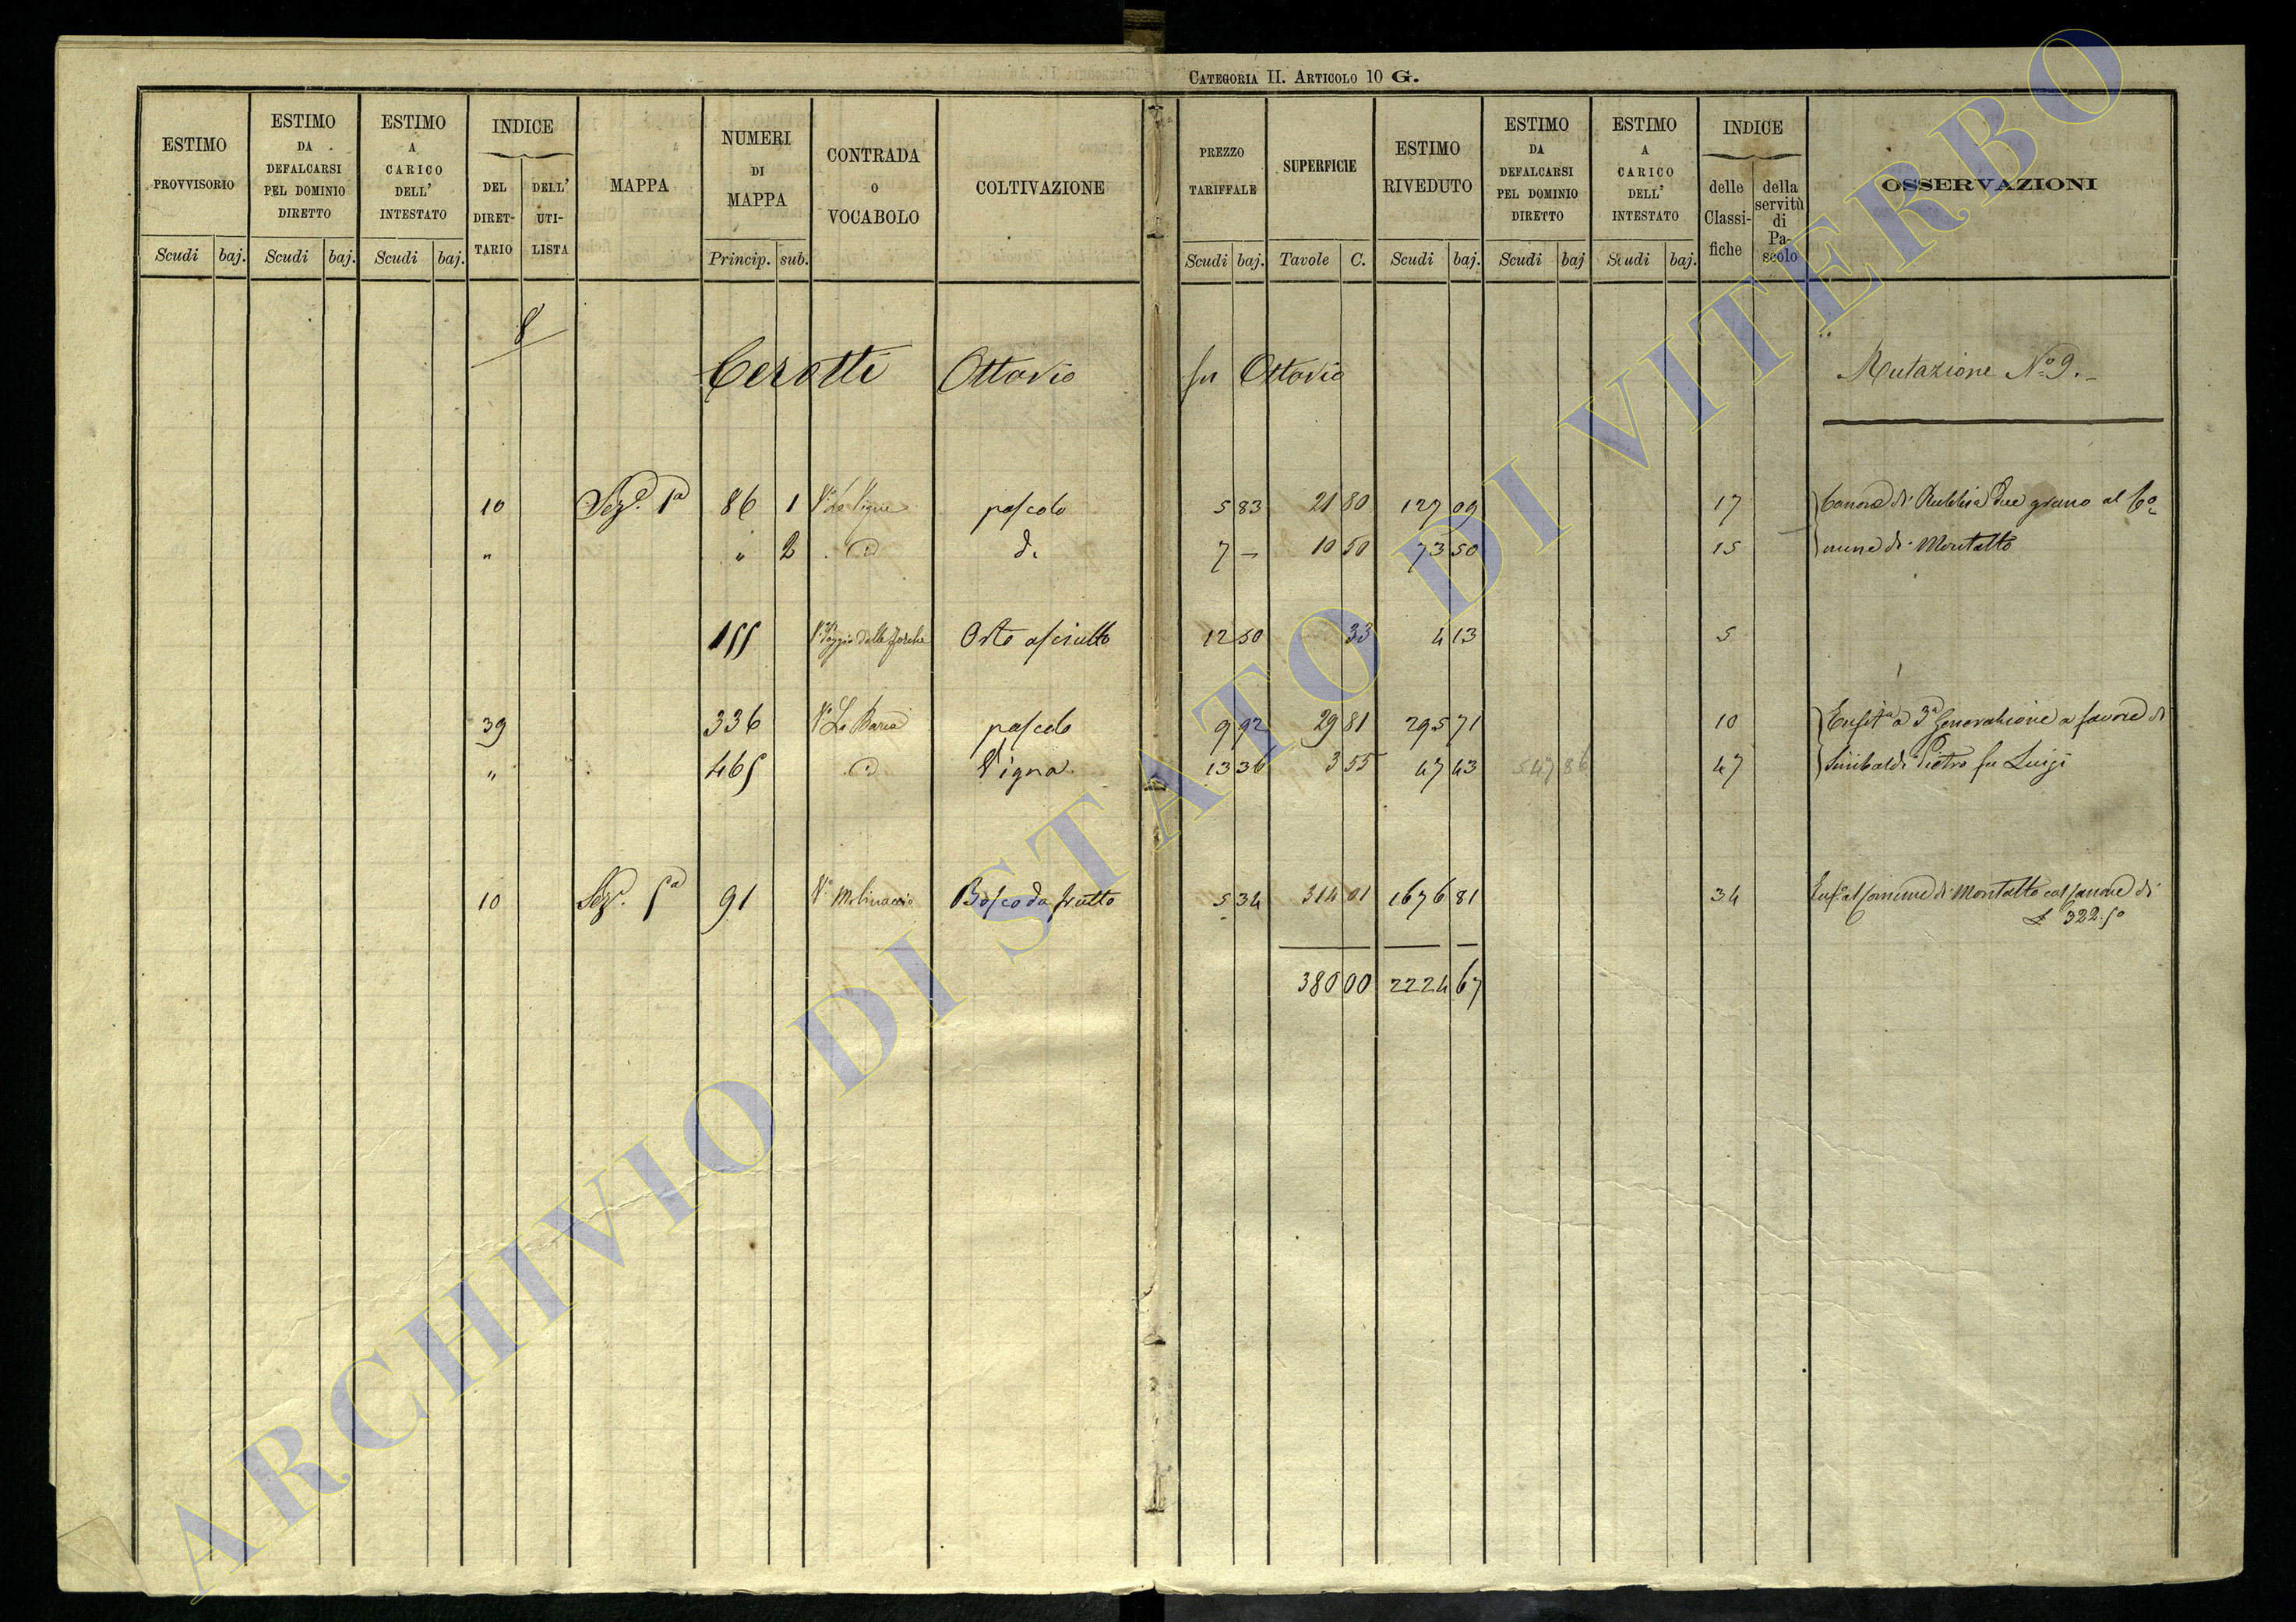 CATEGORIA II. ARTICOLO 10 G.
ESTIMO PROVVISORIO Scudi baj.
ESTIMO DA DEFALCARSI PEL DOMINIO DIRETTO Scudi baj.
ESTIMO A CARICO DELL' INTESTATO Scudi baj.
INDICE DEL DIRETTARIO DELL' UTILISTA
MAPPA
NUMERI DI MAPPA Princip. sub.
CONTRADA O VOCABOLO
COLTIVAZIONE
PREZZO TARIFFALE Scudi baj.
SUPERFICIE Tavole C.
ESTIMO RIVEDUTO Scudi baj.
ESTIMO DA DEFALCARSI PEL DOMINIO DIRETTO Scudi baj
ESTIMO A CARICO DELL' INTESTATO Scudi baj.
INDICE delle Classifiche della servitù di Pascolo
OSSERVAZIONI
8
Cerotti Ottavio fu Ottavio Mutazione N.o 9.
10 Sez.e 1a 86 1 V.o Le Vigne pascolo 5 83 21 80 127 09 17 Canone di Rubbia due grano al Co
" " 2 d. 7 — 10 50 73 50 15 mune di Montalto
155 V.o Poggio delle Forche Orto asciutto 12 50 33 4 13 5
39 336 V.o La pascolo 9 92 29 81 295 71 10 Enfit.a a 3a Generazione a favore di
" 465 Vigna 13 36 3 55 47 43 547 86 47 Sinibaldi Pietro fu Luigi
10 Sez.e 5a 91 V.o Molinaccio Bosco da frutto 5 34 314 01 1676 81 34 Enf. al Comune di Montalto col Canone di
£ 322.50
380 00 2224 67
ARCHIVIO DI STATO DI VITERBO